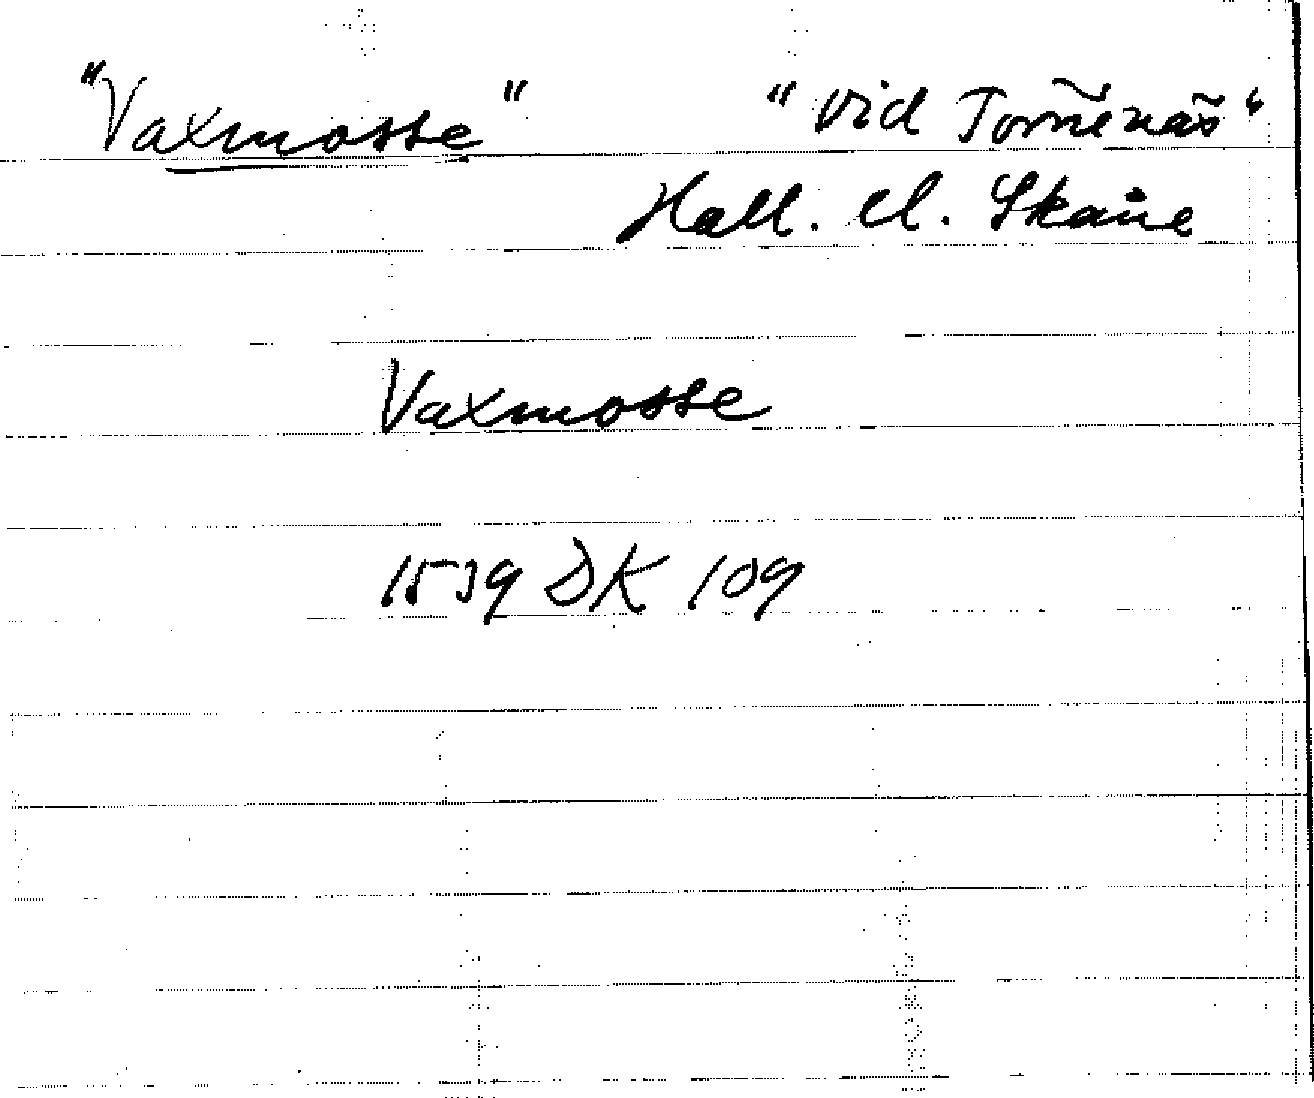 "Vaxmosse" "vid Torñenäs"
Hall. el. Skåne
Vaxmosse
1539 DK 109